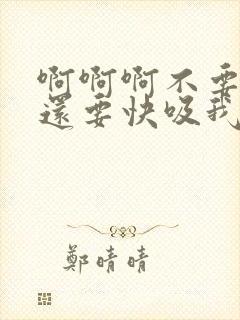 啊啊啊不要
還要快吸我
鄭晴晴